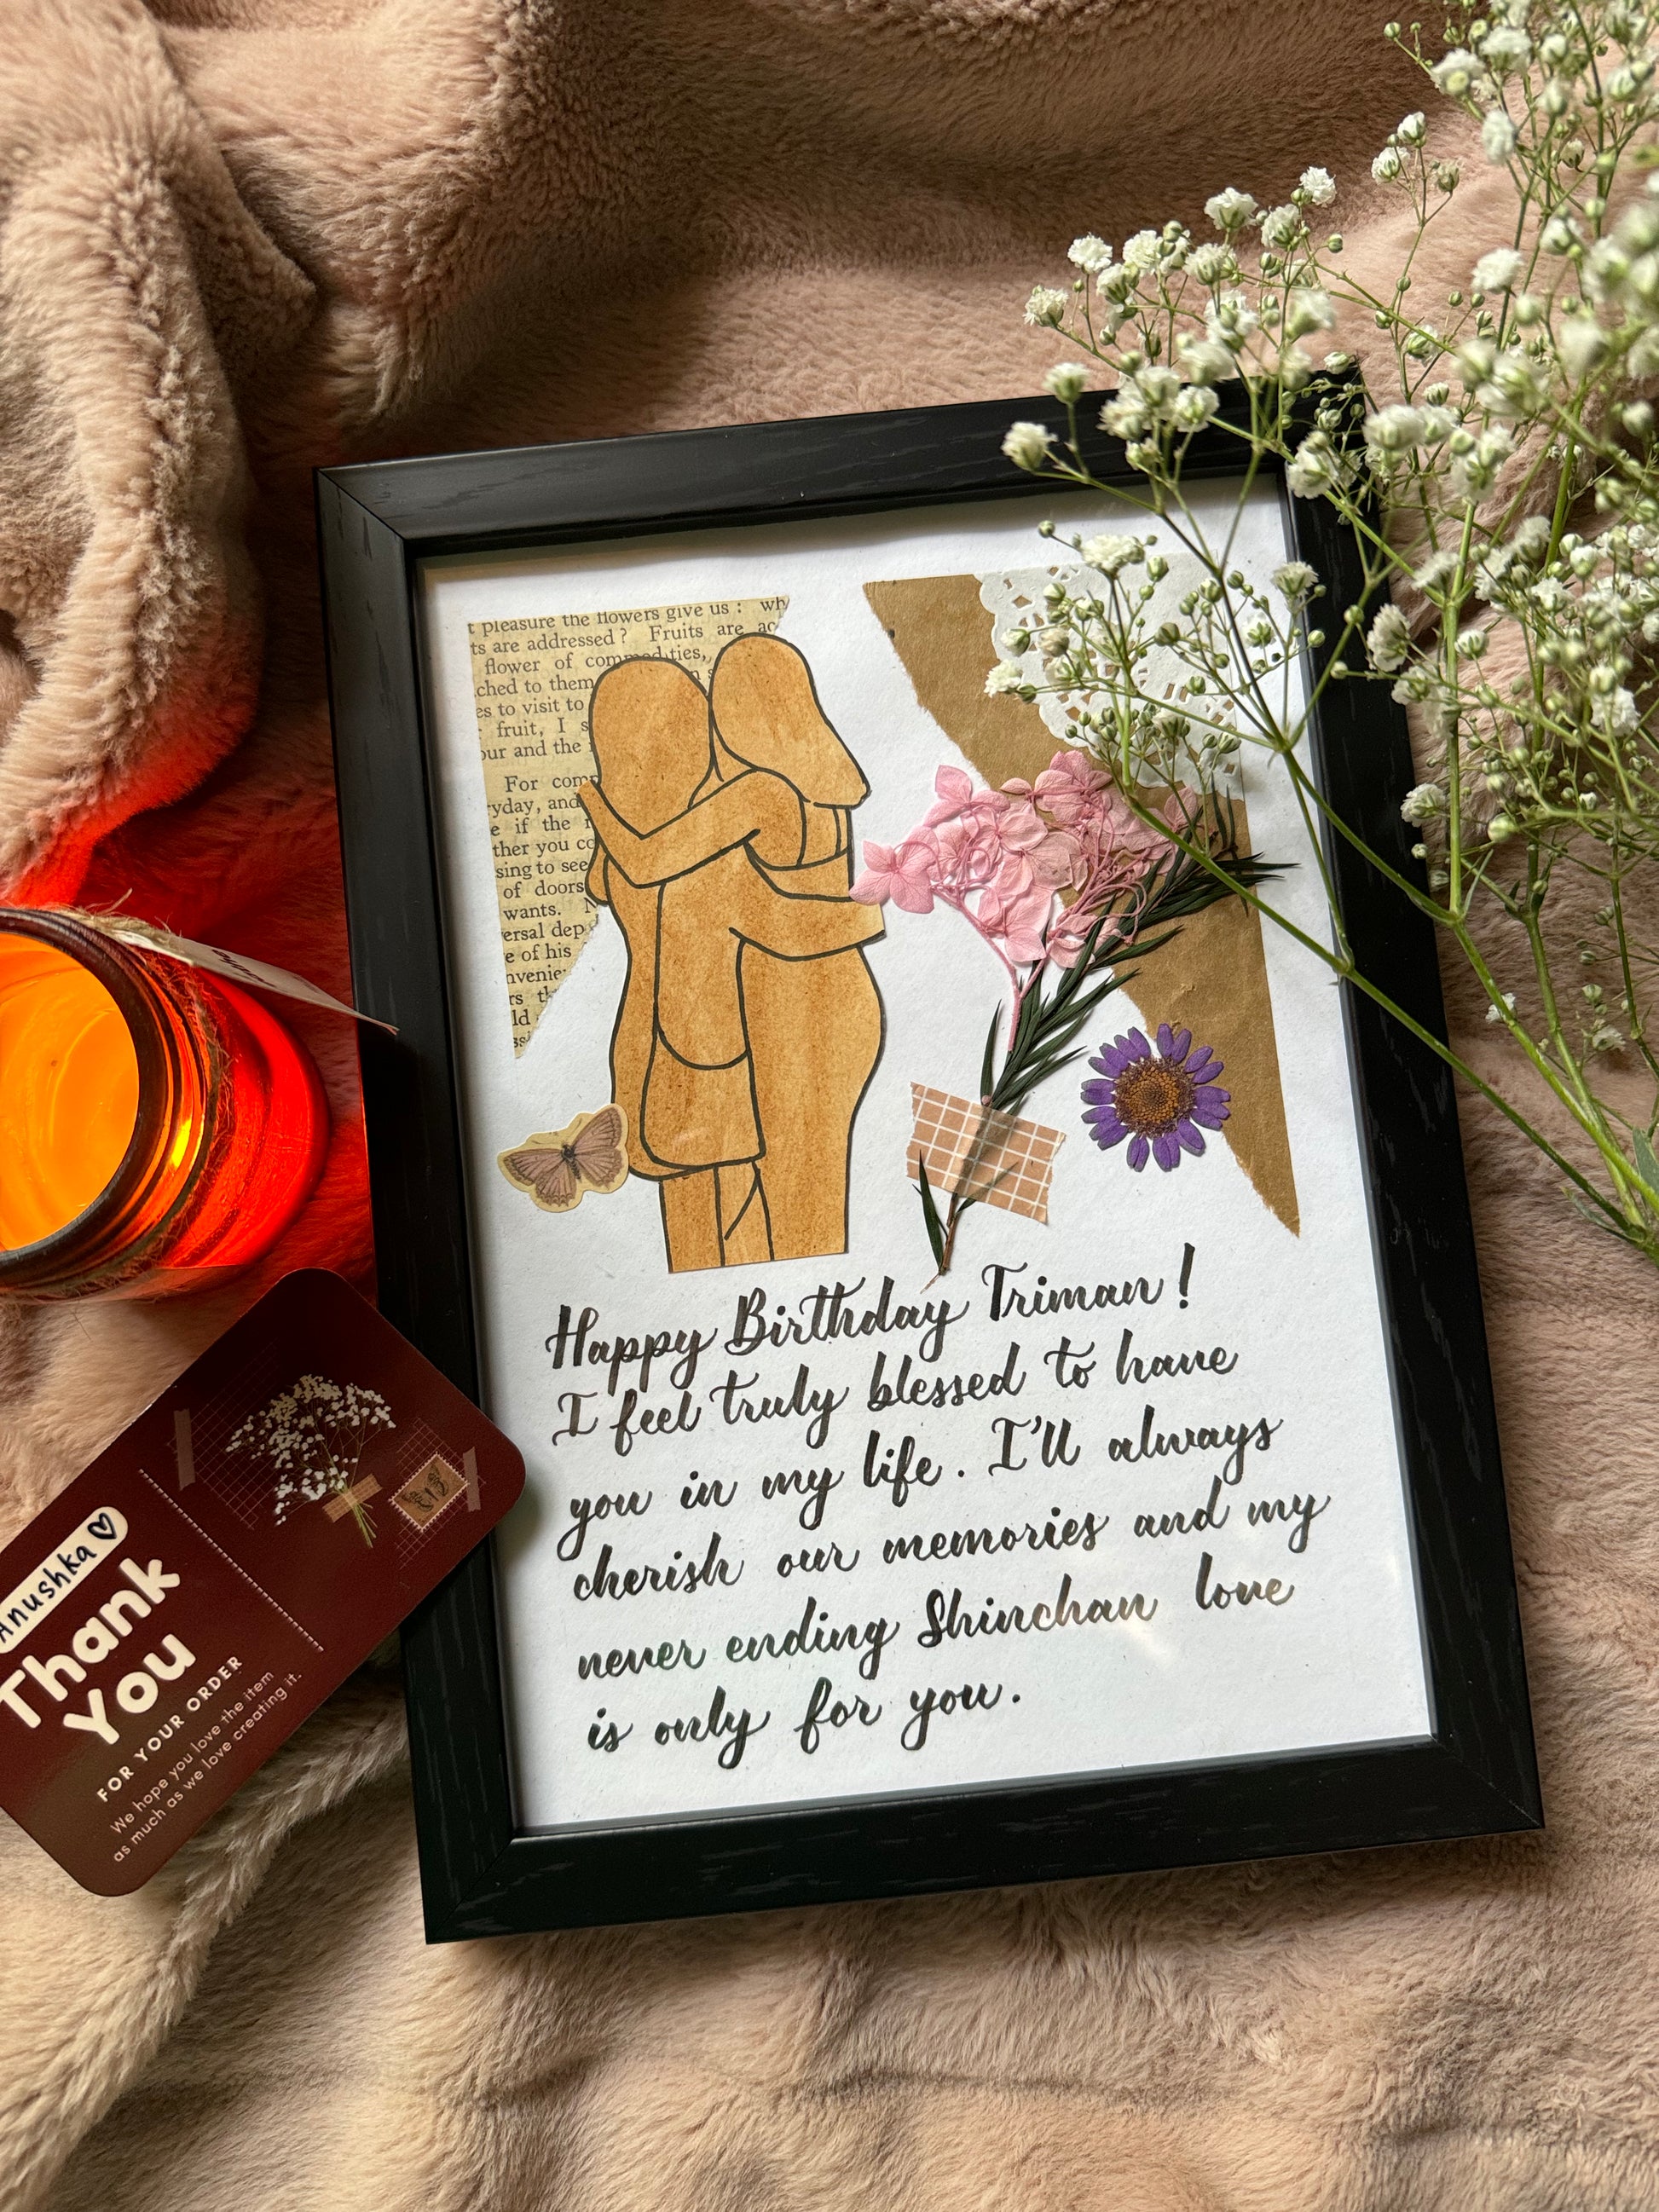 t pleasure the flowers give us : wh
ts are addressed ? Fruits are ac
flower of commodities,
ched to them
es to visit to
fruit, I s
our and the
For com
yday, and
e if the
ther you co
sing to see
of doors
wants. N
ersal dep
e of his
nvenie
rs th
ld
ss
Happy Birthday Triman!
I feel truly blessed to have
you in my life. I'll always
cherish our memories and my
never ending Shinchan love
is only for you.
Anushka ♡
Thank
You
FOR YOUR ORDER
We hope you love the item
as much as we love creating it.